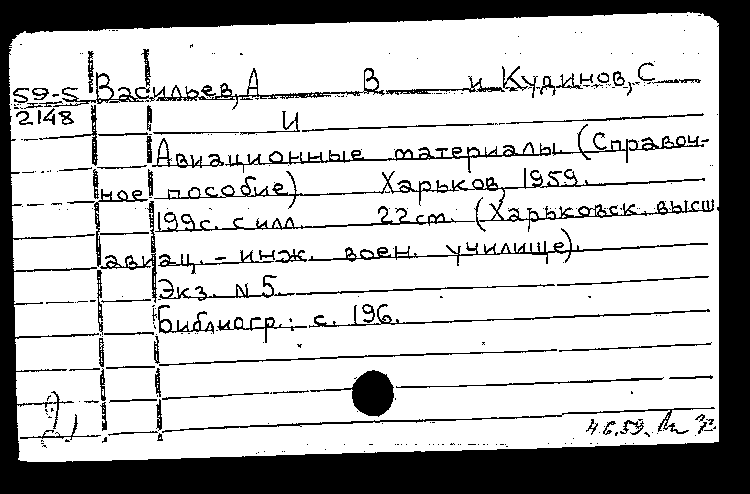 59-5 Васильев, А В и Кудинов, С
2148 И
Авиационные материалы. (Справоч-
ное пособие) Харьков, 1959.
199с. с илл. 22см. (Харьковск. высш.
авиац. - инж. воен. училище).
Экз. N 5.
Библиогр.: с. 196.
2
4.6.59.